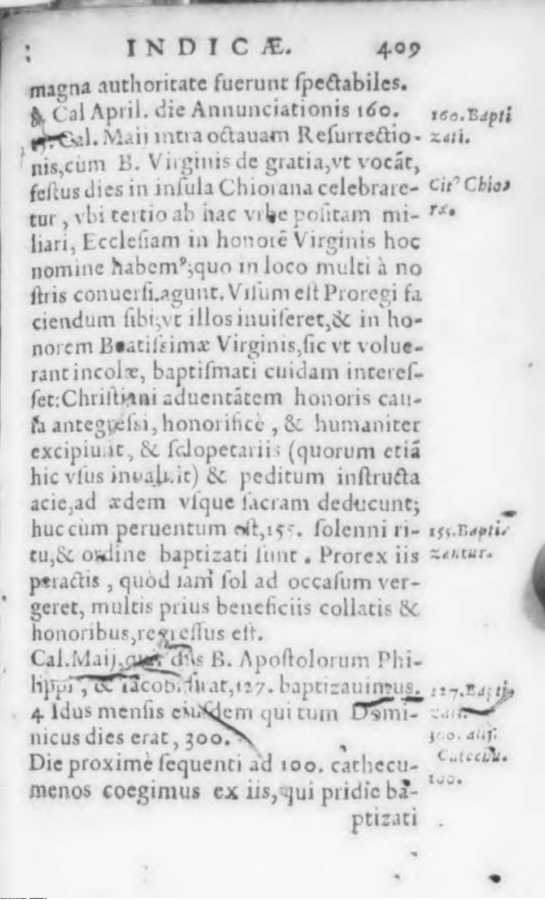 INDICÆ. 409
magna authoritate fuerunt spectabiles.
& Cal April. die Annunciationis 160.
Cal. Maij intra octauam Resurrectio-
nis, cùm B. Virginis de gratia, vt vocāt,
festus dies in insula Chiorana celebrare-
tur, vbi tertio ab hac vrbe positam mi-
liari, Ecclesiam in honorē Virginis hoc
nomine habemꝰ; quo in loco multi à no
stris conuersi. agunt. Visum est Proregi fa
ciendum sibi, vt illos inuiseret, & in ho-
norem Beatissimæ Virginis, sic vt volue-
rant incolæ, baptismati cuidam interes-
set: Christiani aduentātem honoris cau-
sa antegressi, honorificè, & humaniter
excipiunt, & sclopetariis (quorum etiā
hic vsus inualuit) & peditum instructa
acie, ad ædem vsque sacram deducunt;
huc cùm peruentum est, 155. solenni ri-
tu, & ordine baptizati sunt. Prorex iis
peractis, quòd iam sol ad occasum ver-
geret, multis prius beneficiis collatis &
honoribus, regressus est.
Cal. Maij, qui diēs B. Apostolorum Phi-
lippi, & Iacobi fuit, 127. baptizauimus.
4 Idus mensis eiusdem qui tum Domi-
nicus dies erat, 300.
Die proximè sequenti ad 100. cathecu-
menos coegimus ex iis, qui pridie ba-
ptizati
160. Bapti
zati.
Citꝰ Chio
ræ.
155. Bapti
zantur.
127. Bapti
zati.
300. alij.
Catechu.
100.